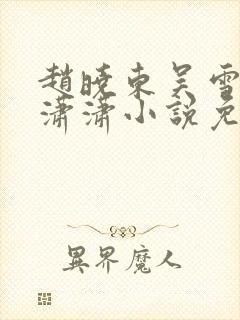 趙曉東吳雪
瀟瀟小說免
異界魔人